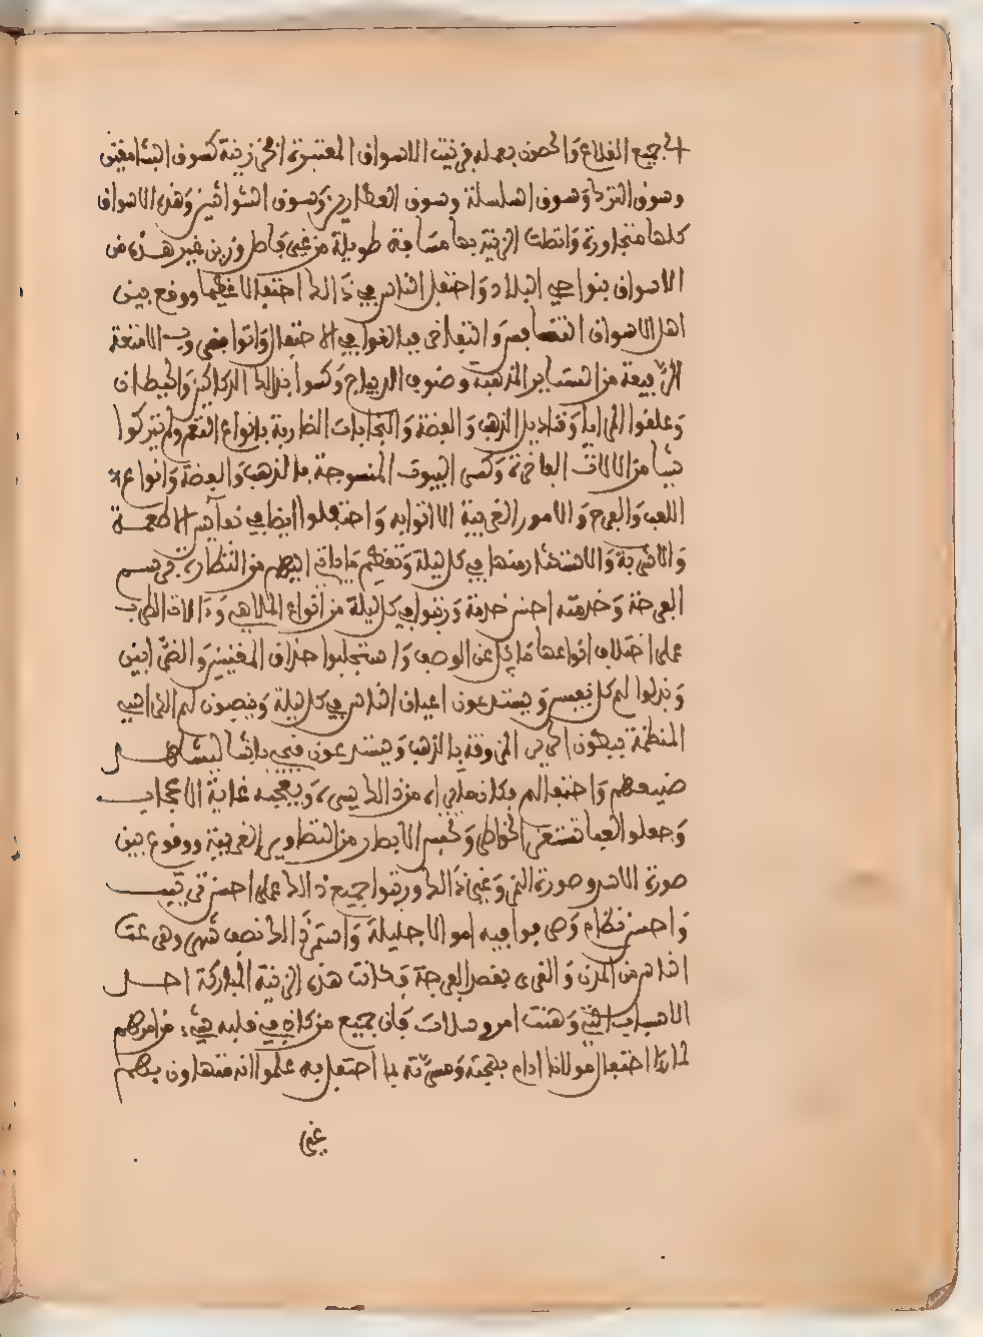 الى جميع القلاع والحصون بعمله فزينت الاسواق المعتبرة افخر زينة كسوق البشامقين
وسوق الترك وسوق السلسلة وسوق العطارين وسوق الشواشين وهذه الاسواق
كلها متجاورة واتصلت الزينة بها مسافة طويلة من غير فاصل وزين غير هذه من
الاسواق بنواحي البلاد واحتفل الناس في ذالك احتفالا عظيما ووقع بين
اهل الاسواق التنافس والتفاخر فبالغوا في الاحتفال واتوا بضروب الامتعة
الرفيعة من الستاير المذهبة وضروب الديباج وكسوا بذالك الدكاكين والحيطان
وعلقوا المرايا وقناديل الذهب والفضة والنجابات الضاربة بانواع النغم ولم يتركوا
شيا من الالات الفاخرة وكسى البيوت المنسوجة بالذهب والفضة وانواع
اللعب والفرح والامور الغريبة الا اتوا به واحتفلوا ايضا في نفايس الاطعمة
والاشربة والاستكثار منها في كل ليلة وتعظيم ما ياتي اليهم من النظار، برسم
الفرجة وخدمته احسن خدمة وزينوا في كل ليلة من انواع الملاهي وءالات الطرب
على اختلاف انواعها ما يكل عن الوصف واستجلبوا حذاق المغنيين والضرابين
وبذلوا لهم كل نفيس ويستدعون اعيان الناس في كل ليلة وينصبون لهم الكراسي
المنظمة ببطون الحرير المرقوقة بالذهب ويستدعون فيها باشا ليشاهد
صنيعهم واحتفالهم فكان ياتي اه من ذالك يسره ويعجبه غاية الاعجاب
وجعلوا العابا تستغرق الخواطر وتحير الابصار من التصاوير الغريبة ووقوع بين
صورة الاسد وصورة النمر وغير ذالك ورتبوا جميع ذالك على احسن ترتيب
واحسن نظام وصرفوا فيه اموالا جليلة واستمر ذالك نصف شهر وهرعت
الناس من المدن والقرى بقصد الفرجة فكانت هذه الزينة المباركة احد
الاسباب التي وهنت امر وسلات فان جميع من كان في قلبه شيء من امرهم
لما راا احتفال مولانا ادام بهجته ومسرته لما احتفل به علموا انه متهاون بهم
غير